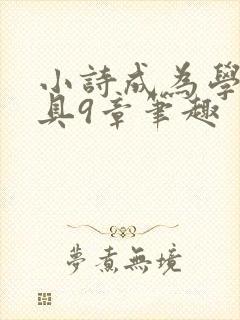 小詩成為學
具9章筆趣
夢煮無境